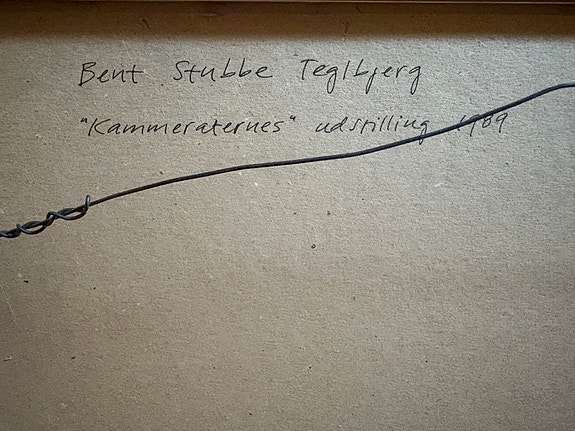 Bent Stubbe Teglbjerg
"Kammeraternes" udstilling 1989